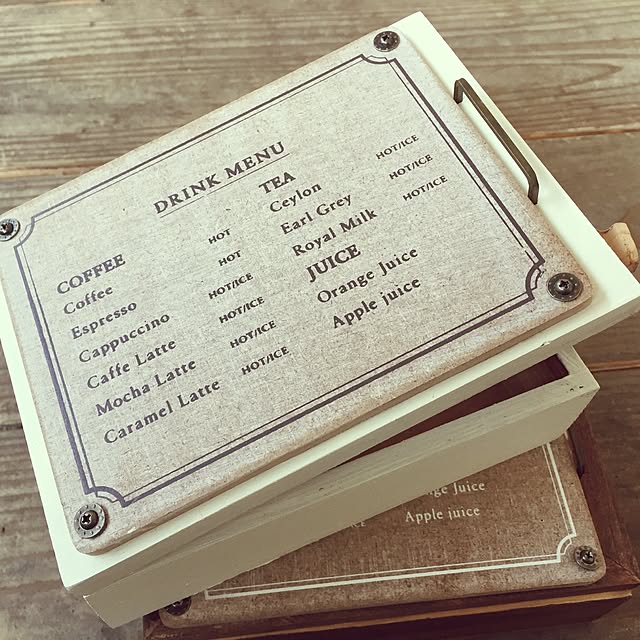 DRINK MENU
COFFEE
Coffee HOT
Espresso HOT
Cappuccino HOT/ICE
Caffe Latte HOT/ICE
Mocha Latte HOT/ICE
Caramel Latte HOT/ICE
TEA
Ceylon HOT/ICE
Earl Grey HOT/ICE
Royal Milk HOT/ICE
JUICE
Orange Juice
Apple juice
Juice
Apple juice